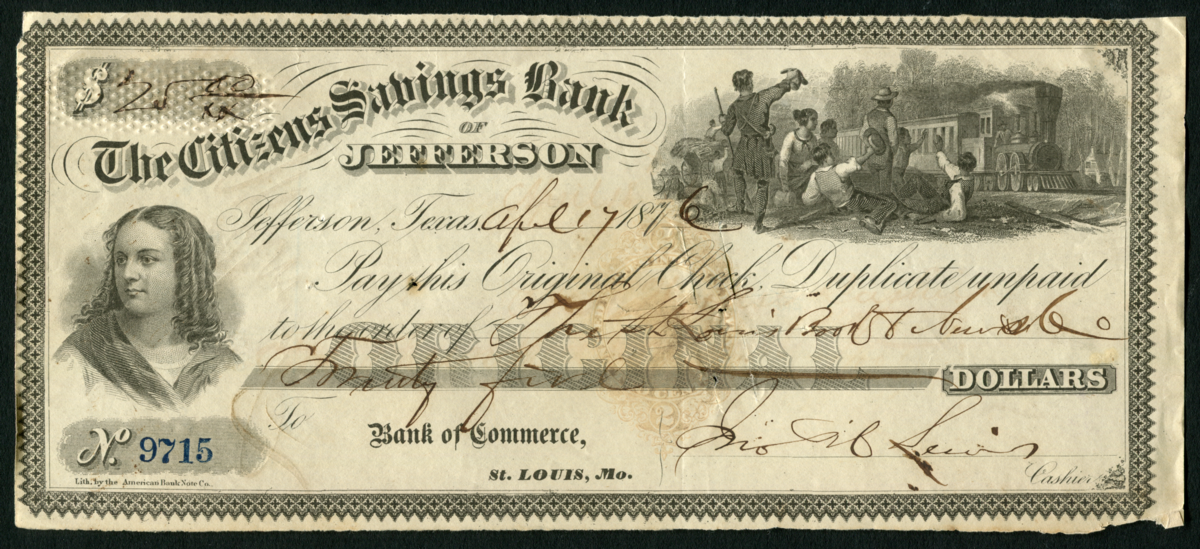 $ 25 00/xx
The Citizens Savings Bank
OF
JEFFERSON
Jefferson, Texas, Apl 17 1876
Pay this Original Check, Duplicate unpaid
to the order of The St Louis Book & News Co
ORIGINAL
Twenty five DOLLARS
To Bank of Commerce,
Jno M Lewis
St. LOUIS, Mo.
Cashier
No. 9715
Lith. by the American Bank Note Co.